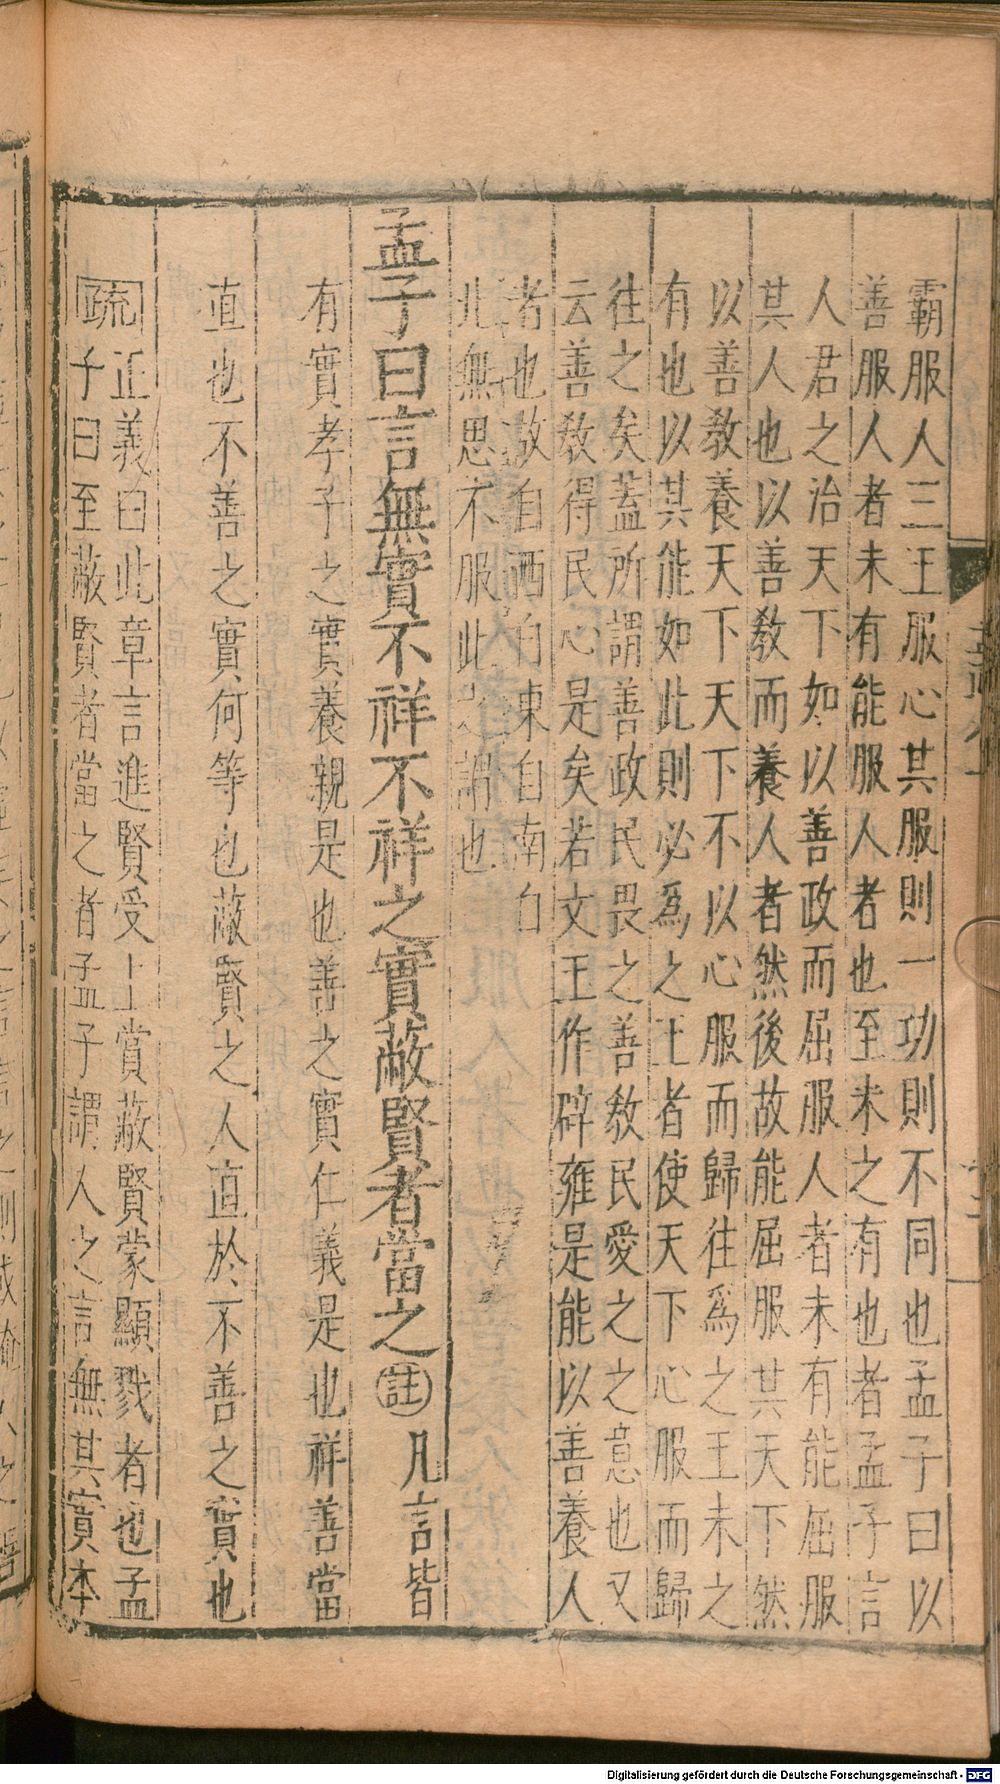 霸服人三王服心其服則一功則不同也孟子曰以
善服人者未有能服人者也至未之有也者孟子言
人君之治天下如以善政而屈服人者未有能屈服
其人也以善教而養人者然後故能屈服其天下然
以善教養天下天下不以心服而歸往為之王未之
有也以其能如此則必為之王者使天下心服而歸
往之矣蓋所謂善政民畏之善教民愛之之意也又
云善教得民心是矣若文王作辟雍是能以善養人
者也故自西自東自南自
北無思不服此之謂也
孟子曰言無實不祥不祥之實蔽賢者當之註凡言皆
有實孝子之實養親是也善之實仁義是也祥善當
直也不善之實何等也蔽賢之人直於不善之實也
疏正義曰此章言進賢受上賞蔽賢蒙顯戮者也孟
子曰至蔽賢者當之者孟子謂人之言無其實本
Digitalisierung gefördert durch die Deutsche Forschungsgemeinschaft - DFG